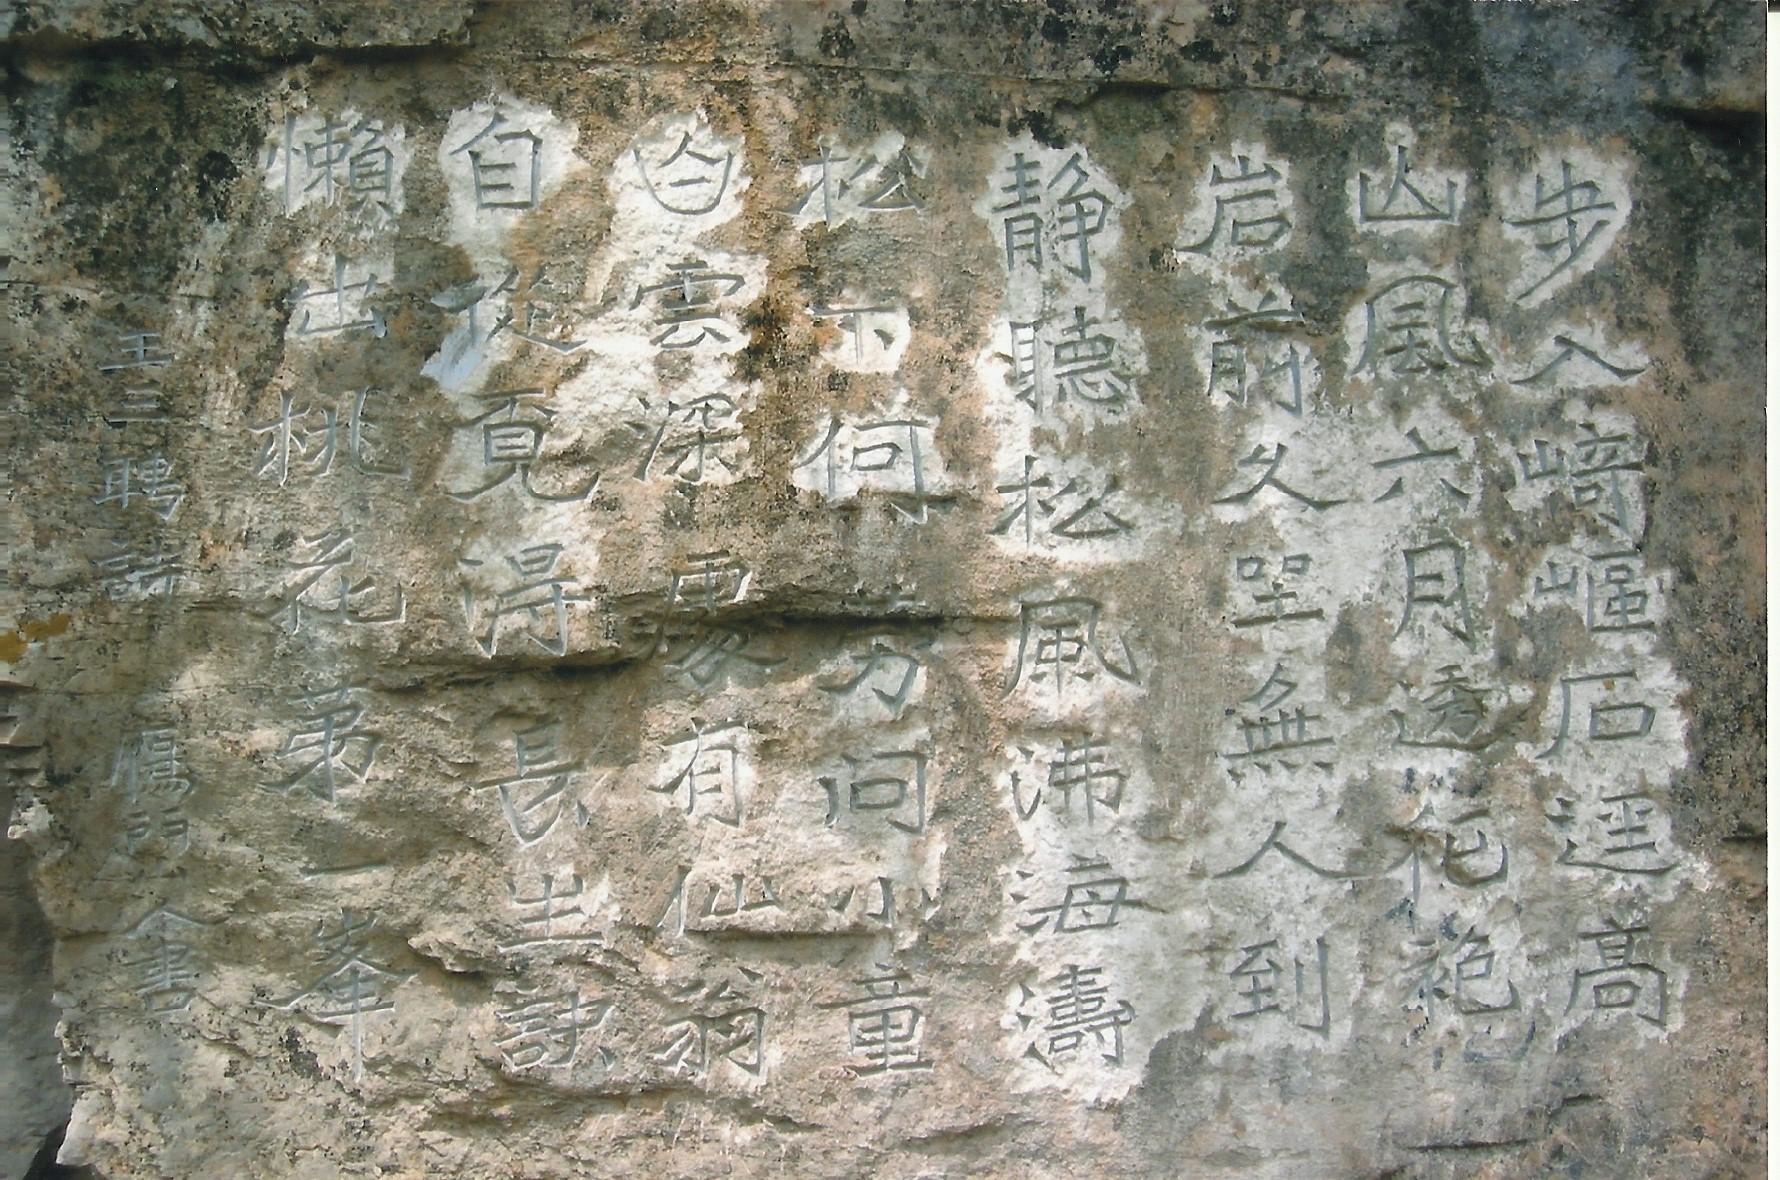 步入崎嶇石逕高
山風六月透花袍
岩前久坐無人到
静聽松風沸海濤
松下何劳问小童
白雲深處有仙翁
自從覓得長生訣
懶出桃花第一峯
王三聘詩 鴈門山人書